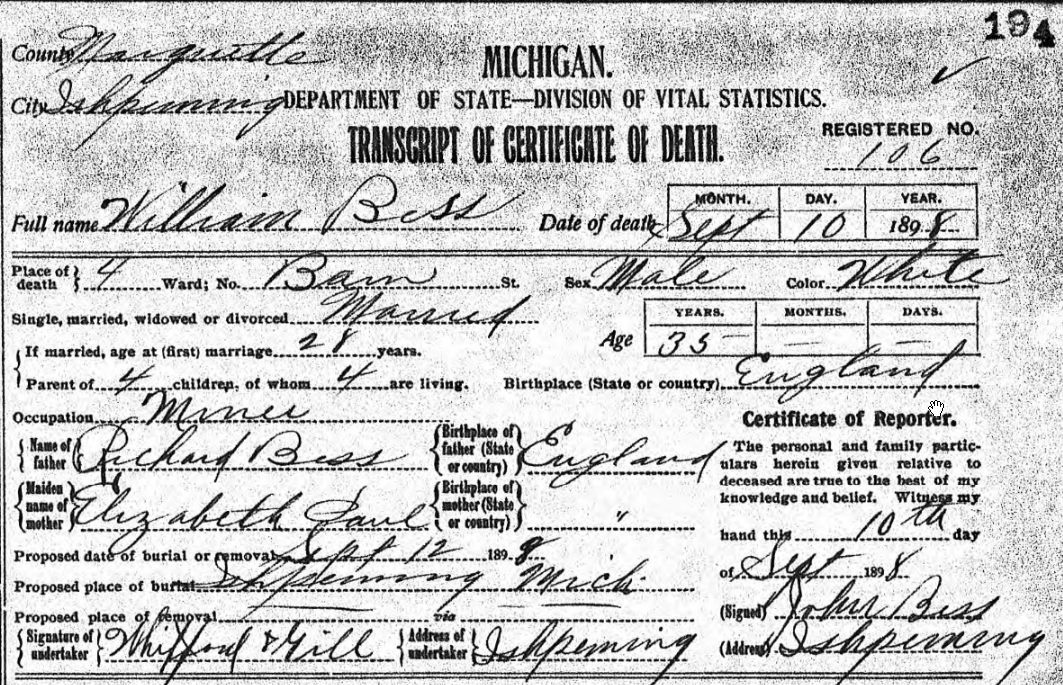 194
County Marquette
MICHIGAN.
City Ishpeming DEPARTMENT OF STATE—DIVISION OF VITAL STATISTICS.
TRANSCRIPT OF CERTIFICATE OF DEATH.
REGISTERED NO.
106
Full name William Bess Date of death Sept 10 1898
MONTH. DAY. YEAR.
Place of death 4 Ward; No. Barn St. Sex Male Color White
Single, married, widowed or divorced Married
Age 35 — —
YEARS. MONTHS. DAYS.
If married, age at (first) marriage 28 years.
Parent of 4 children, of whom 4 are living. Birthplace (State or country) England
Occupation Miner
Name of father Richard Bess Birthplace of father (State or country) England
Maiden name of mother Elizabeth Paul Birthplace of mother (State or country) "
Proposed date of burial or removal Sept 12 1898
Proposed place of burial Ishpeming Mich.
Proposed place of removal via
Signature of undertaker & Gill Address of undertaker Ishpeming
Certificate of Reporter.
The personal and family partic-
ulars herein given relative to
deceased are true to the best of my
knowledge and belief. Witness my
hand this 10th day
of Sept 1898
(Signed) John Bess
(Address) Ishpeming